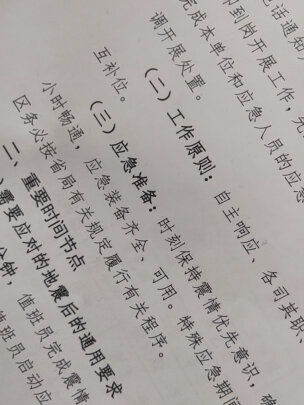 电话通知
即到岗开展工作，先
完成本单位和应急人员的应急
调开展处置。
（二）工作原则：自主响应、各司其职、
互补位。
（三）应急准备：时刻保持震情优先意识，确
小时畅通，应急装备齐全、可用。特殊应急期间
区务必按省局有关规定履行有关程序。
二、重要时间节点
需要应对的地震后的通用要求
分钟，值班员完成震情
值班员启动应